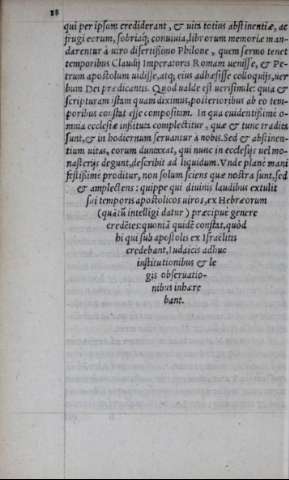 88
qui per ipsam crediderant, & uitæ totius abstinentiæ, ac
frugi eorum, sobriaq́; conuiuia, librorum memoriæ man
darentur à uiro disertissimo Philone, quem sermo tenet
temporibus Claudij Imperatoris Romam uenisse, & Pe-
trum apostolum uidisse, atq; eius adhæsisse colloquijs, uer
bum Dei prædicantis. Quod ualde est uerisimile: quia &
scripturam istam quam diximus, posterioribus ab eo tem-
poribus constat esse compositam. In qua euidentißimè o-
mnia ecclesiæ instituta complectitur, quæ & tunc tradita
sunt, & in hodiernum seruantur à nobis. Sed & abstinen-
tium uitas, eorum duntaxat, qui nunc in ecclesijs uel mo-
nasterijs degunt, describit ad liquidum. Vnde planè mani
festißimè proditur, non solum sciens quæ nostra sunt, sed
& amplectens: quippe qui diuinis laudibus extulit
sui temporis apostolicos uiros, ex Hebræorum
(quãtũ intelligi datur) præcipuè genere
credẽtes: quoniã quidẽ constat, quòd
hi qui sub apostolis ex Israëlitis
credebant, Iudaicis adhuc
institutionibus & le
gis obseruatio-
nibus inhære
bant.